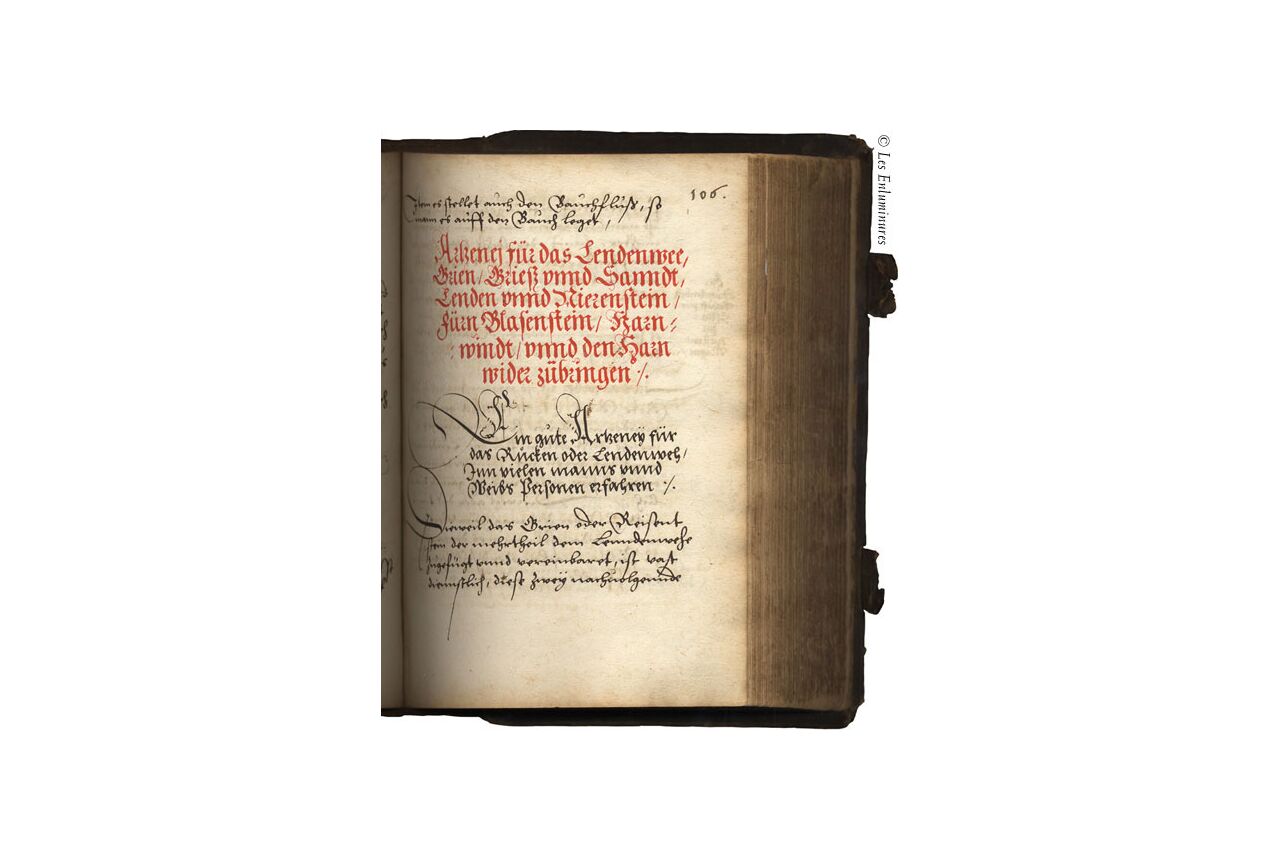 106.
Item es stellet auch den Bauchfluß, so
mann es auff den Bauch leget,
Artzenej für das Lendenwee,
Grien / Grieß vnnd Sanndt,
Lenden vnnd Nierenstein /
fürn Blasenstein / Harn⸗
⸗windt / vnnd den Harn
wider zübringen ⁒
Ein gute Artzeney für
das Rücken oder Lendenweh /
Inn vielen manns vnnd
Weibs Personen erfahren ⁒
Dieweil das Grien oder Reisent
stein der mehrtheil dem Lenndenwehe
zugefügt vnnd vereinbaret, ist vast
dienstlich, diese zwey nachuolgennde
© Les Enluminures